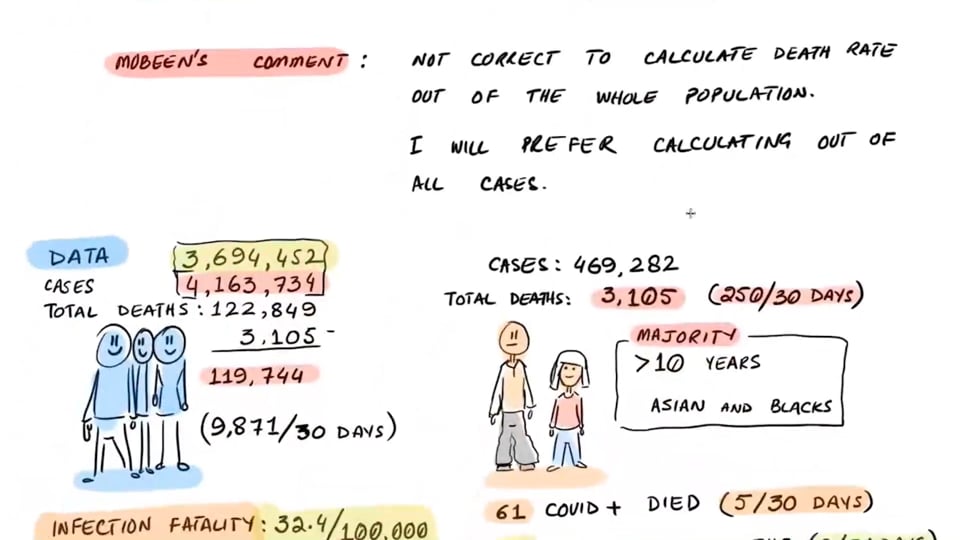 MOBEEN'S COMMENT : NOT CORRECT TO CALCULATE DEATH RATE
OUT OF THE WHOLE POPULATION.
I WILL PREFER CALCULATING OUT OF
ALL CASES.
DATA 3,694,452
CASES 4,163,734
TOTAL DEATHS : 122,849
3,105 -
119,744
(9,871/30 DAYS)
INFECTION FATALITY : 32.4/100,000
CASES : 469,282
TOTAL DEATHS: 3,105 (250/30 DAYS)
MAJORITY
>10 YEARS
ASIAN AND BLACKS
61 COVID + DIED (5/30 DAYS)